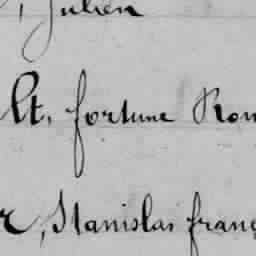 , Julien
lt, fortune Rom
r, Stanislas franç